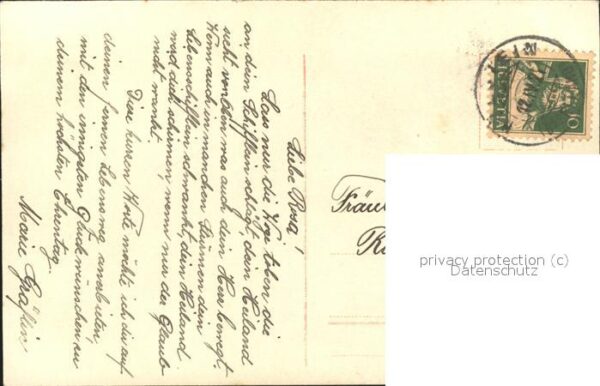 Liebe Rosa!
Lass nur die Wogen toben die
an dein Schifflein schlägt, dein Heiland
sieht von oben was auch dein Herz bewegt.
Wenn auch in manchen Stürmen dein
Lebensschifflein schwankt, dein Heiland
wird dich schirmen, wenn nur der Glaub
nicht wankt.
Diese kurzen Worte möchte ich dir auf
deinen fernen Lebensweg
mit den innigsten Glückwünschen zu
deinem höchsten Ehrentag.
Marie
HELVETIA
10
Fräul
privacy protection (c)
Datenschutz